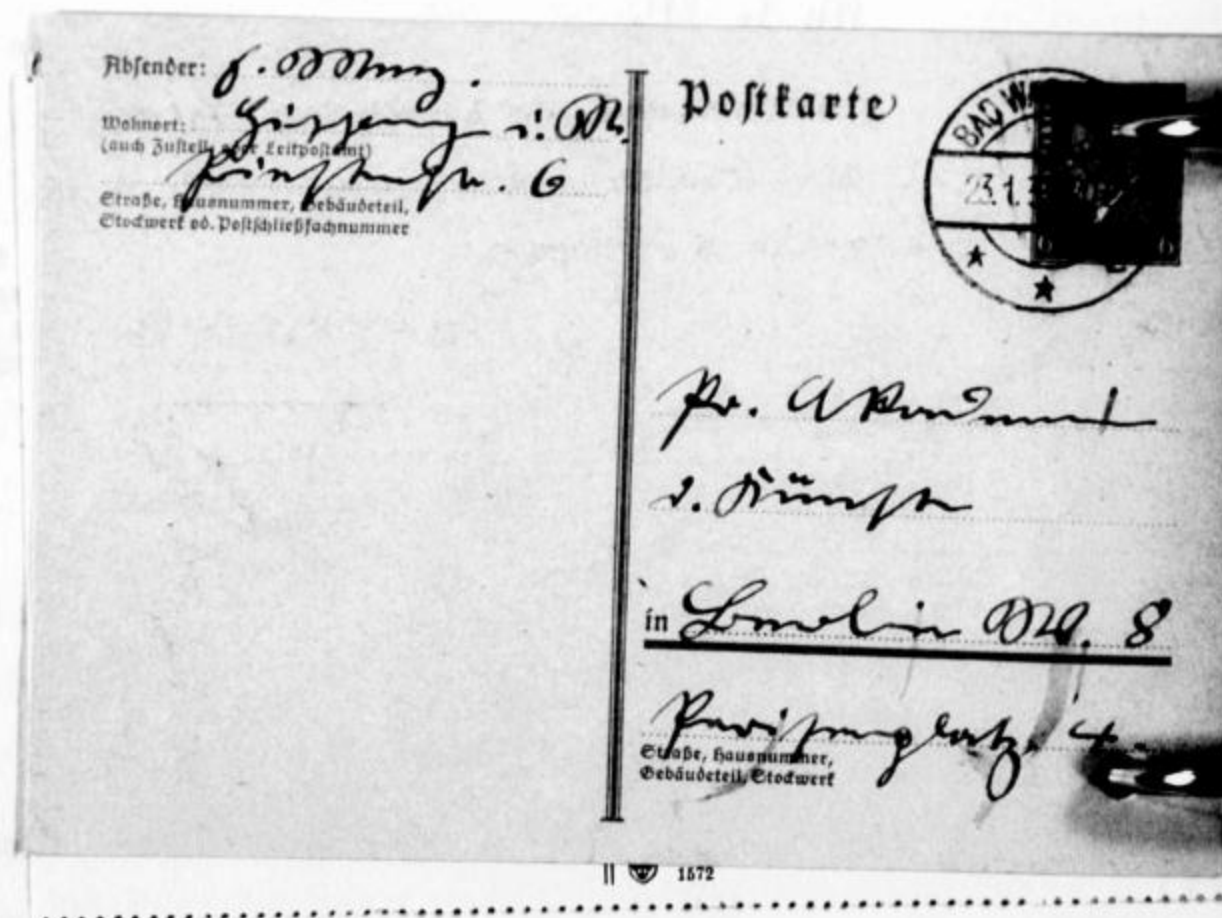 Absender:
Wohnort: i. W.
(auch Zustell- oder Leitpostamt)
6
Straße, Hausnummer, Gebäudeteil,
Stockwerk od. Postschließfachnummer
Postkarte
BAD W
23.1.3
Pr. Akademie
d. Künste
in Berlin W. 8
Pariserplatz 4
Straße, Hausnummer,
Gebäudeteil, Stockwerk
1572